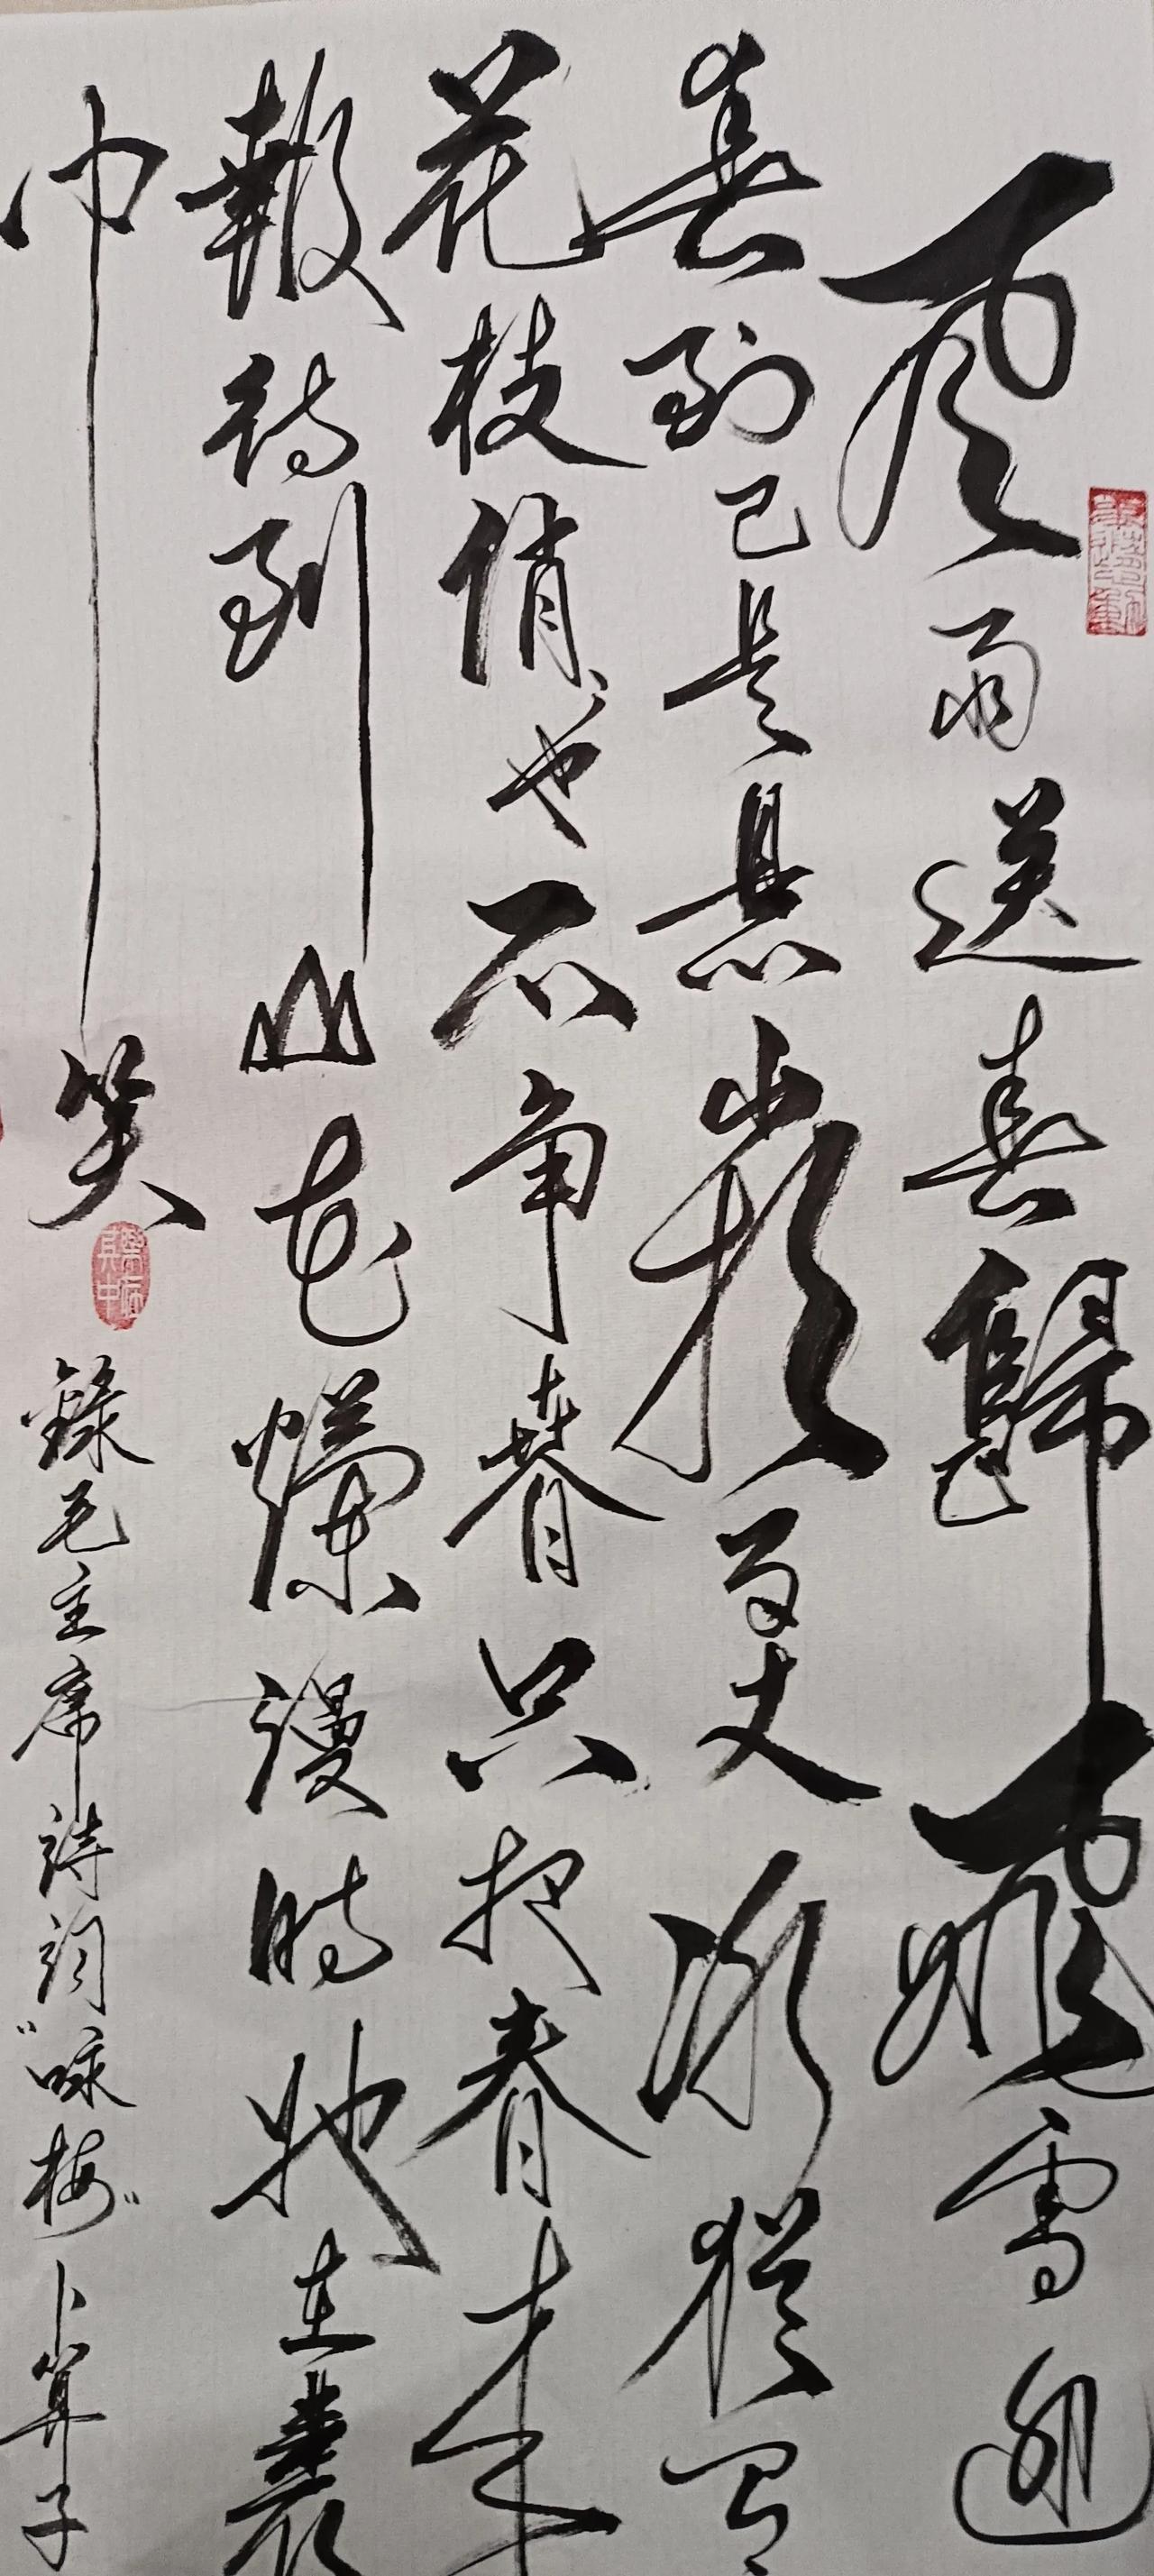 风雨送春歸飛雪迎
春到已是悬崖百丈冰犹有
花枝俏俏也不争春只把春来
報待到山花爛漫時她在叢
中笑
錄毛主席詩詞"咏梅"卜算子